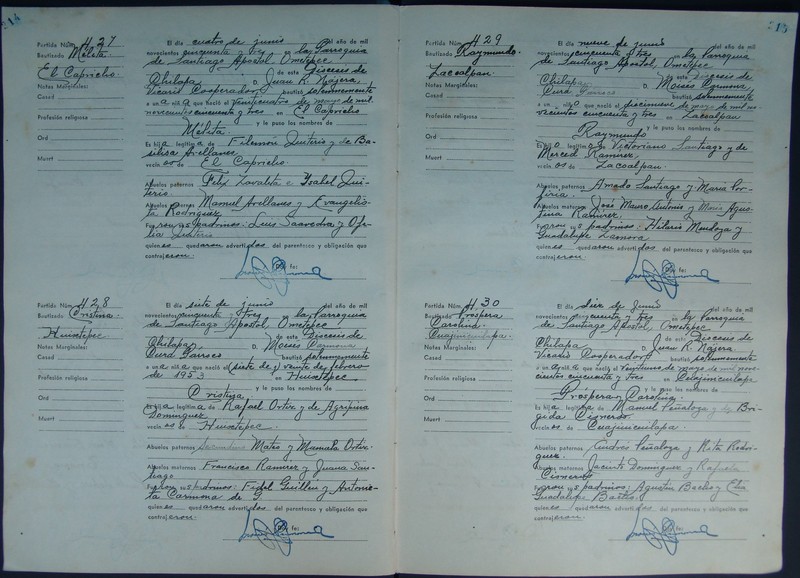 Partida Núm. 427
Bautizado Melita
El Capricho.
Notas Marginales:
Casad
Profesión religiosa
Ord
Muert
El día cuatro de junio del año de mil
novecientos cincuenta y tres en la Parroquia
de Santiago Apostol, Ometepec
de esta Diocesis de
Chilapa, Juan R. Najera
Vicario Cooperador bautizó solemnemente
a un a niñ a que nació el veinticuatro de mayo de mil
novecientos cincuenta y tres en El Capricho
y le puso los nombres de
Melita
Es hij a legítim a de Filemon Quiterio y de Ba-
silisa Arellanes
vecin os de El Capricho
Abuelos paternos Felix Lovalta e Ysabel Qui-
terio.
Abuelos maternos Manuel Arellanes y Evangelis-
ta Rodriguez
Fueron sus padrinos: Luis Saavedra y Ofe-
lia
quienes quedaron advertidos del parentesco y obligación que
contrajeron.
Doy fe:
Partida Núm. 428
Bautizado Cristina.
Huixtepec
Notas Marginales:
Casad
Profesión religiosa
Ord
Muert
El día siete de junio del año de mil
novecientos cincuenta y tres en la Parroquia
de Santiago Apostol, Ometepec
de esta Diocesis de
Chilapa, Moises Carmona
Cura Parroco bautizó solemnemente
a un a niñ a que nació el siete de febrero
de 1953 en Huixtepec
y le puso los nombres de
Cristina
Es hij a legítim a de Rafael Ortiz y de Agripina
Dominguez
vecin os de Huixtepec
Abuelos paternos Mateo y Manuela Ortiz
Abuelos maternos Francisco Ramirez y Juana San-
tiago
Fueron sus padrinos: Fidel Guillen y Antonie-
ta Carmona de G.
quienes quedaron advertidos del parentesco y obligación que
contrajeron.
Doy fe:
Partida Núm. 429
Bautizado Raymundo.
Zacoalpan
Notas Marginales:
Casad
Profesión religiosa
Ord
Muert
El día nueve de junio del año de mil
novecientos cincuenta y tres en la Parroquia
de Santiago Apostol, Ometepec
de esta Diocesis de
Chilapa, Moises Carmona
Cura Parroco bautizó solemnemente
a un niñ o que nació el diecinueve de mayo de mil no-
vecientos cincuenta y tres en Zacoalpan
y le puso los nombres de
Raymundo
Es hijo legítimo de Victoriano Santiago y de
Merced Ramirez
vecin os de Zacoalpan.
Abuelos paternos Amado Santiago y Maria Por-
firia.
Abuelos maternos José Mauro Antonio y Maria Agus-
tina Ramirez.
Fueron sus padrinos: Hilario Mendoza y
Guadalupe Zamora
quienes quedaron advertidos del parentesco y obligación que
contrajeron.
Doy fe:
Partida Núm. 430
Bautizado Prospera
Carolina.
Cuajinicuilapa.
Notas Marginales:
Casad
Profesión religiosa
Ord
Muert
El día diez de Junio del año de mil
novecientos cincuenta y tres en la Parroquia
de Santiago Apostol, Ometepec
de esta Diocesis de
Chilapa. Juan R. Najera
Vicario Cooperador bautizó solemnemente
a un a niñ a que nació el veintiuno de mayo de mil nove-
cientos cincuenta y tres en Cuajinicuilapa
y le puso los nombres de
Prospera Carolina.
Es hija legítima de Manuel Peñaloza y de Bri-
gida Cisneros
vecin os de Cuajinicuilapa.
Abuelos paternos Andres Peñaloza y Rita Rodri-
guez.
Abuelos maternos Jacinto Dominguez y Rafaela
Cisneros
Fueron sus padrinos: Agustin Baños y
Guadalupe Baños.
quienes quedaron advertidos del parentesco y obligación que
contrajeron.
Doy fe: